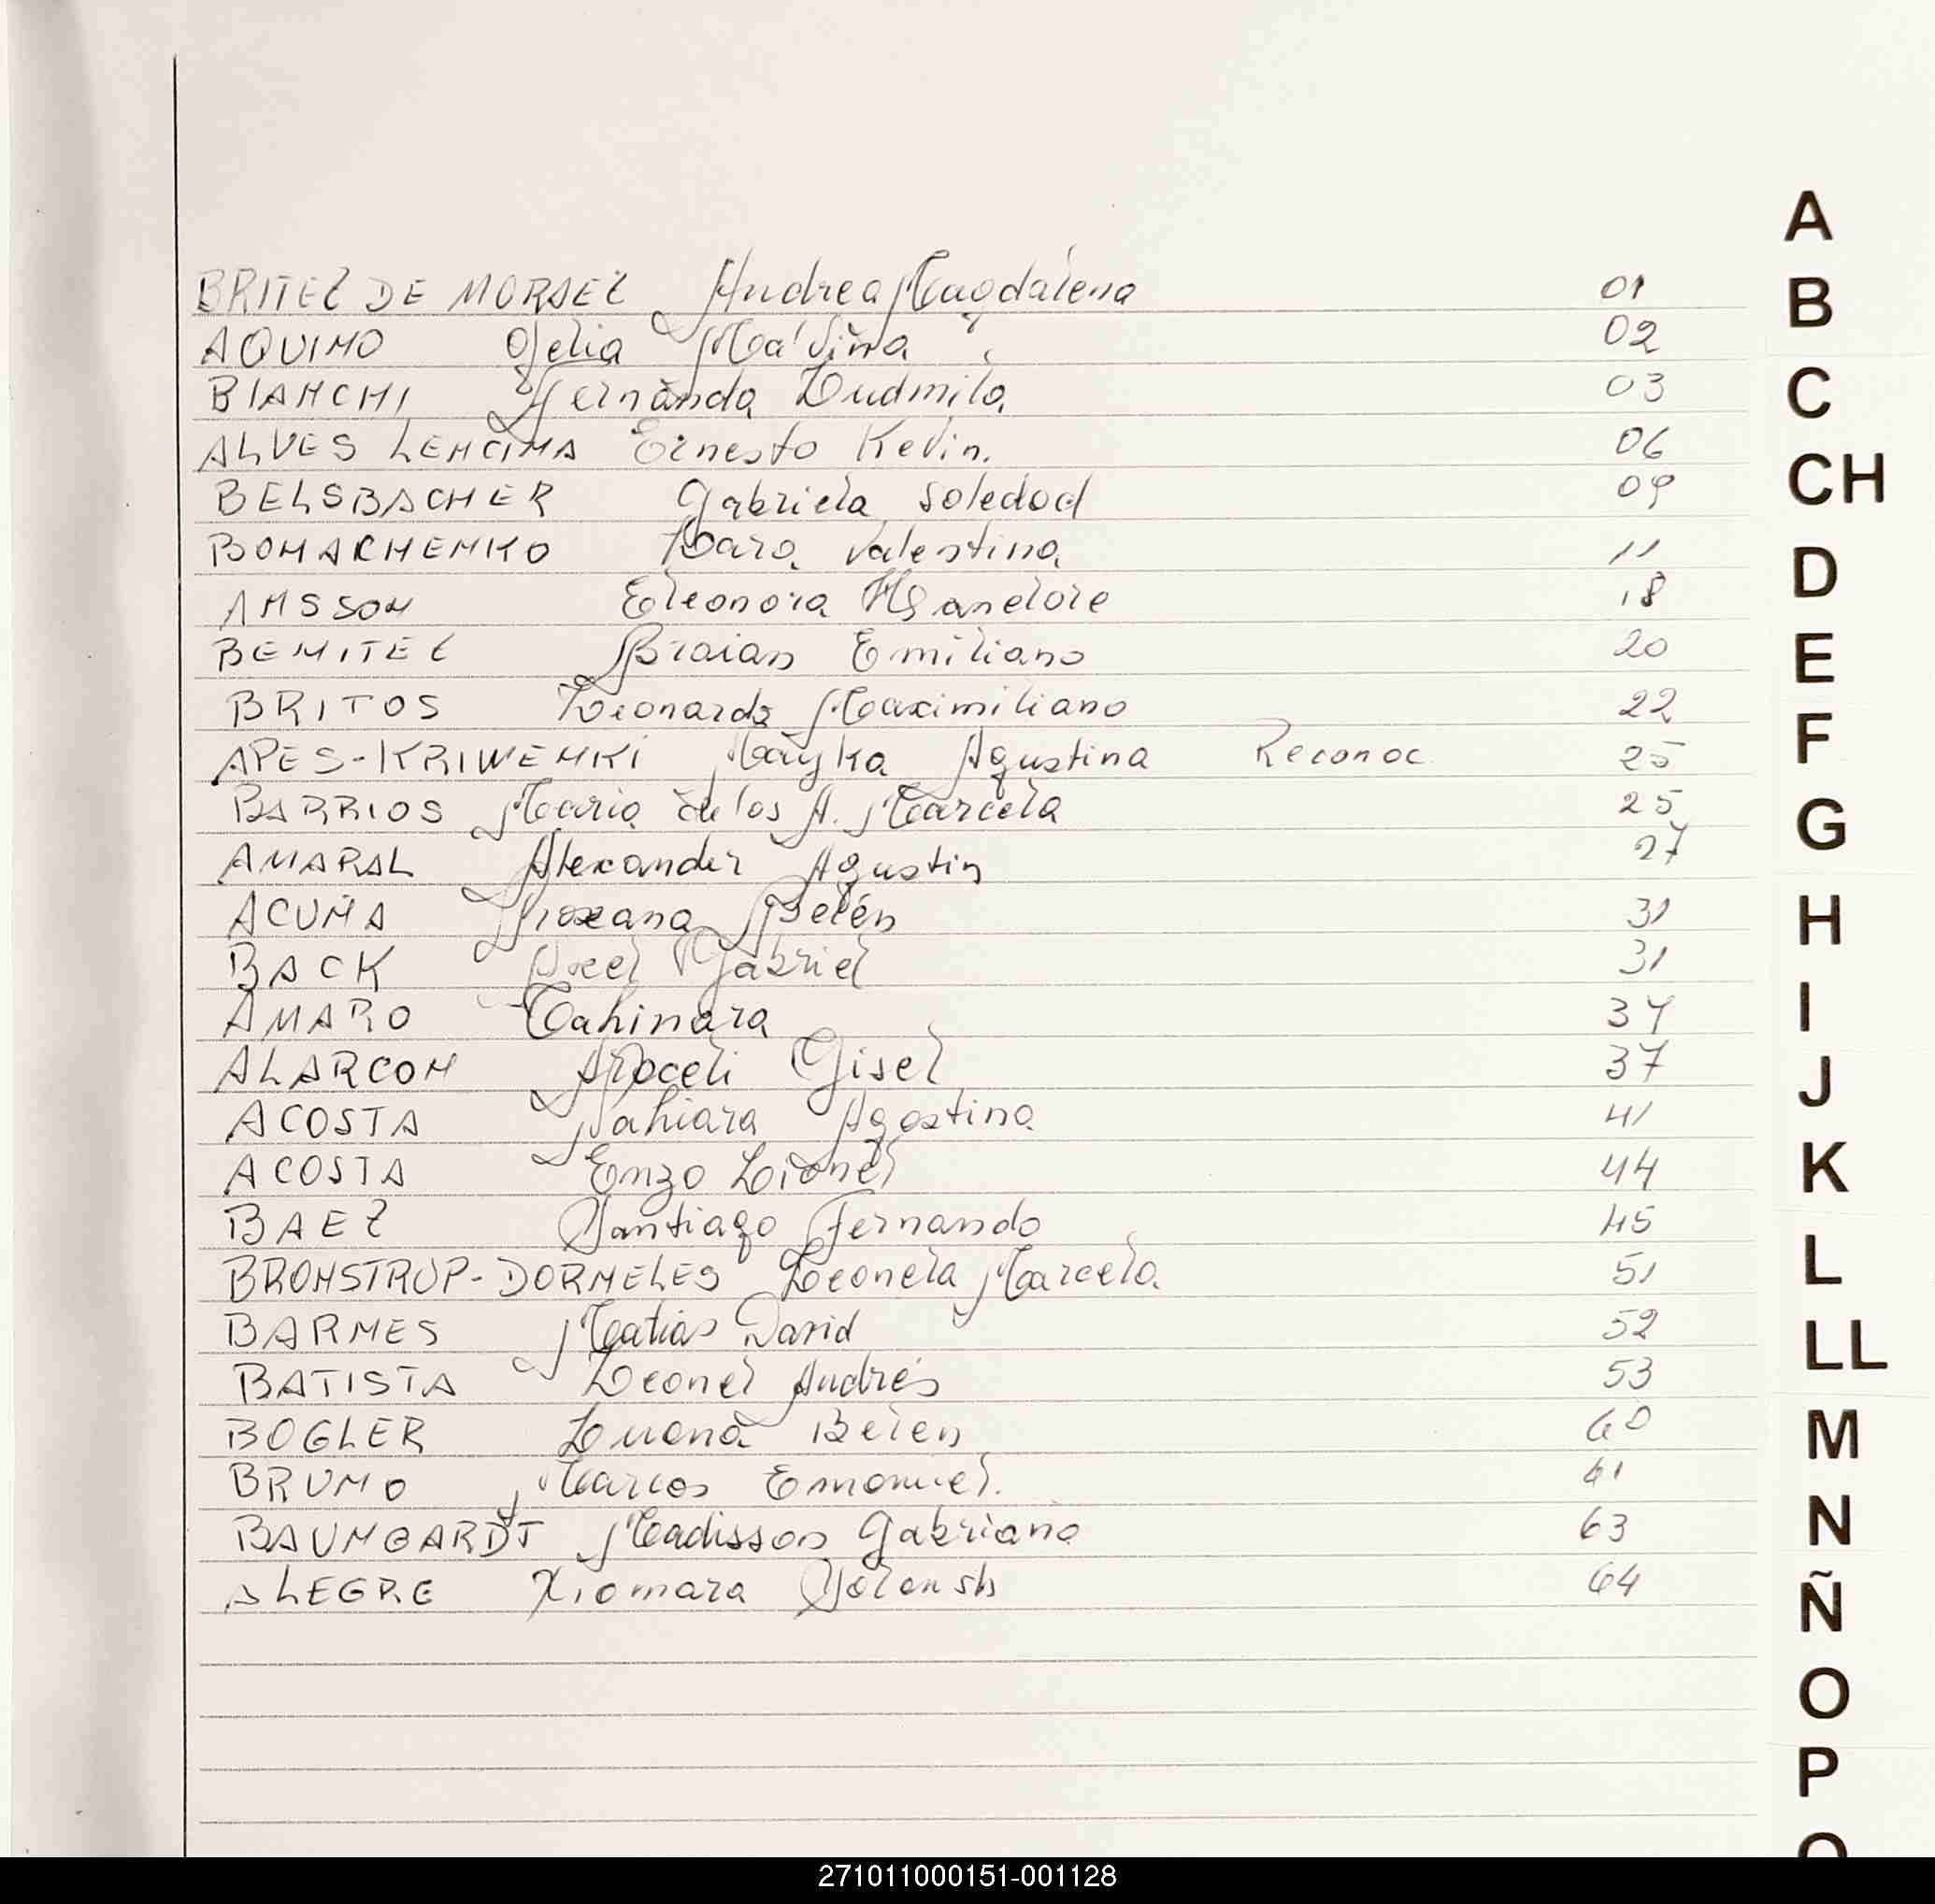 BRITEZ DE MORAEZ Andrea Magdalena 01
AQUINO Ofelia Malvina 02
BIANCHI Fernanda Ludmila 03
ALVES LENCINA Ernesto Kevin. 06
BELSBACHER Gabriela Soledad 09
BONACHENKO Lara Valentina 11
ANSSON Eleonora Hanelore 18
BENITEZ Braian Emiliano 20
BRITOS Leonardo Maximiliano 22
APES-KRIWENKI Mayka Agustina Reconoc 25
BARRIOS Maria de los A. Marcela 25
AMARAL Alexander Agustin 27
ACUÑA Roxana Belén 31
BACK Gabriel 31
AMARO Tahinara 34
ALARCON Araceli Gisel 37
ACOSTA Nahiara Agostina 41
ACOSTA Enzo Lionel 44
BAEZ Santiago Fernando 45
BRONSTRUP-DORNELES Leonela Marcela 51
BARNES Matias David 52
BATISTA Leonel Andrés 53
BOGLER Luana Belen 60
BRUNO Marcos Emanuel. 61
BAUMGARDT Madisson Gabriana 63
ALEGRE Xiomara 64
A
B
C
CH
D
E
F
G
H
I
J
K
L
LL
M
N
Ñ
O
P
271011000151-001128